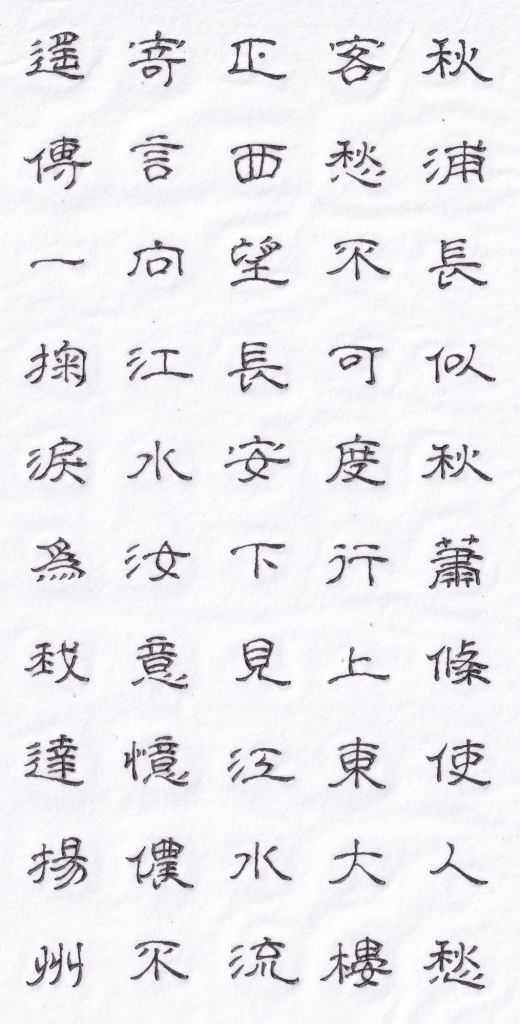 秋浦長似秋蕭條使人愁
客愁不可度行上東大樓
正西望長安下見江水流
寄言向江水汝意憶儂不
遥傳一掬淚爲我達揚州